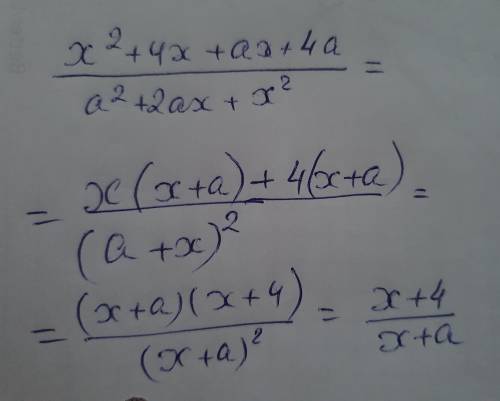 x² + 4x + ax + 4a
――――――――― =
a² + 2ax + x²
= x(x+a) + 4(x+a)
――――――――― =
(a + x)²
= (x+a)(x+4) / (x+a)² = x+4 / x+a